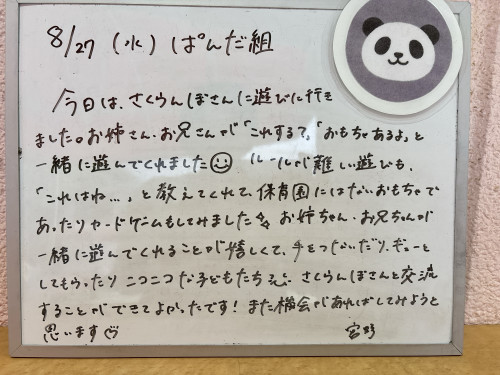 8/27 (水) ぱんだ組
今日は、さくらんぼさんに遊びに行き
ました。お姉さん、お兄さんが「これするで」「おもちゃあるよ」と
一緒に遊んでくれました☺ ルールが難しい遊びも、
「これはね…」と教えてくれて、保育園にはないおもちゃで
あったりカードゲームもしてみました☆ お姉ちゃん・お兄ちゃんが
一緒に遊んでくれることが嬉しくて、手をつないだり、ギューと
してもらったりニコニコな子どもたち。さくらんぼさんと交流
することができてよかったです！また機会があればしてみようと
思います♡ 宮野